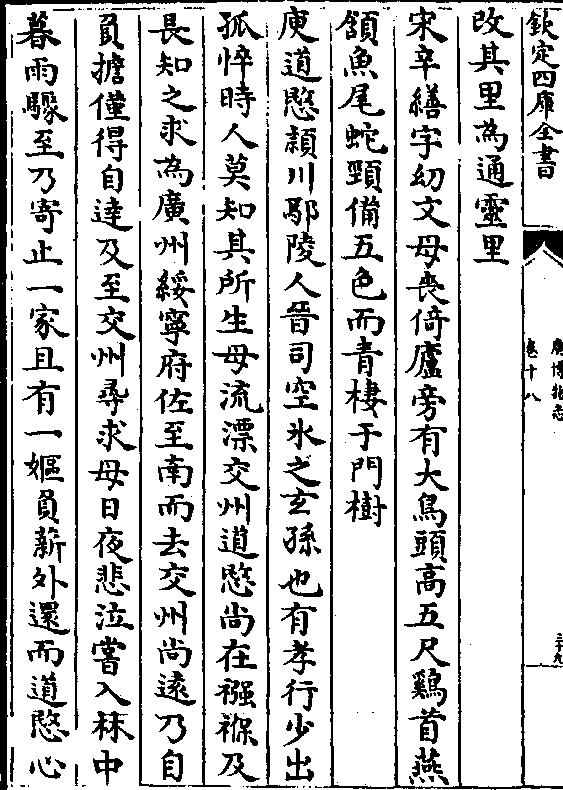 欽定四庫全書
廣博物志
卷十八
三十九
改其里為通靈里
宋辛繕字幼文母喪倚廬旁有大鳥頭高五尺鷄首燕
頷魚尾蛇頸備五色而青棲于門樹
庾道愍潁川鄢陵人晉司空氷之玄孫也有孝行少出
孤悴時人莫知其所生母流漂交州道愍尚在襁褓及
長知之求為廣州綏寧府佐至南而去交州尚遠乃自
負擔僅得自達及至交州尋求母日夜悲泣嘗入林中
暮雨驟至乃寄止一家且有一嫗負薪外還而道愍心